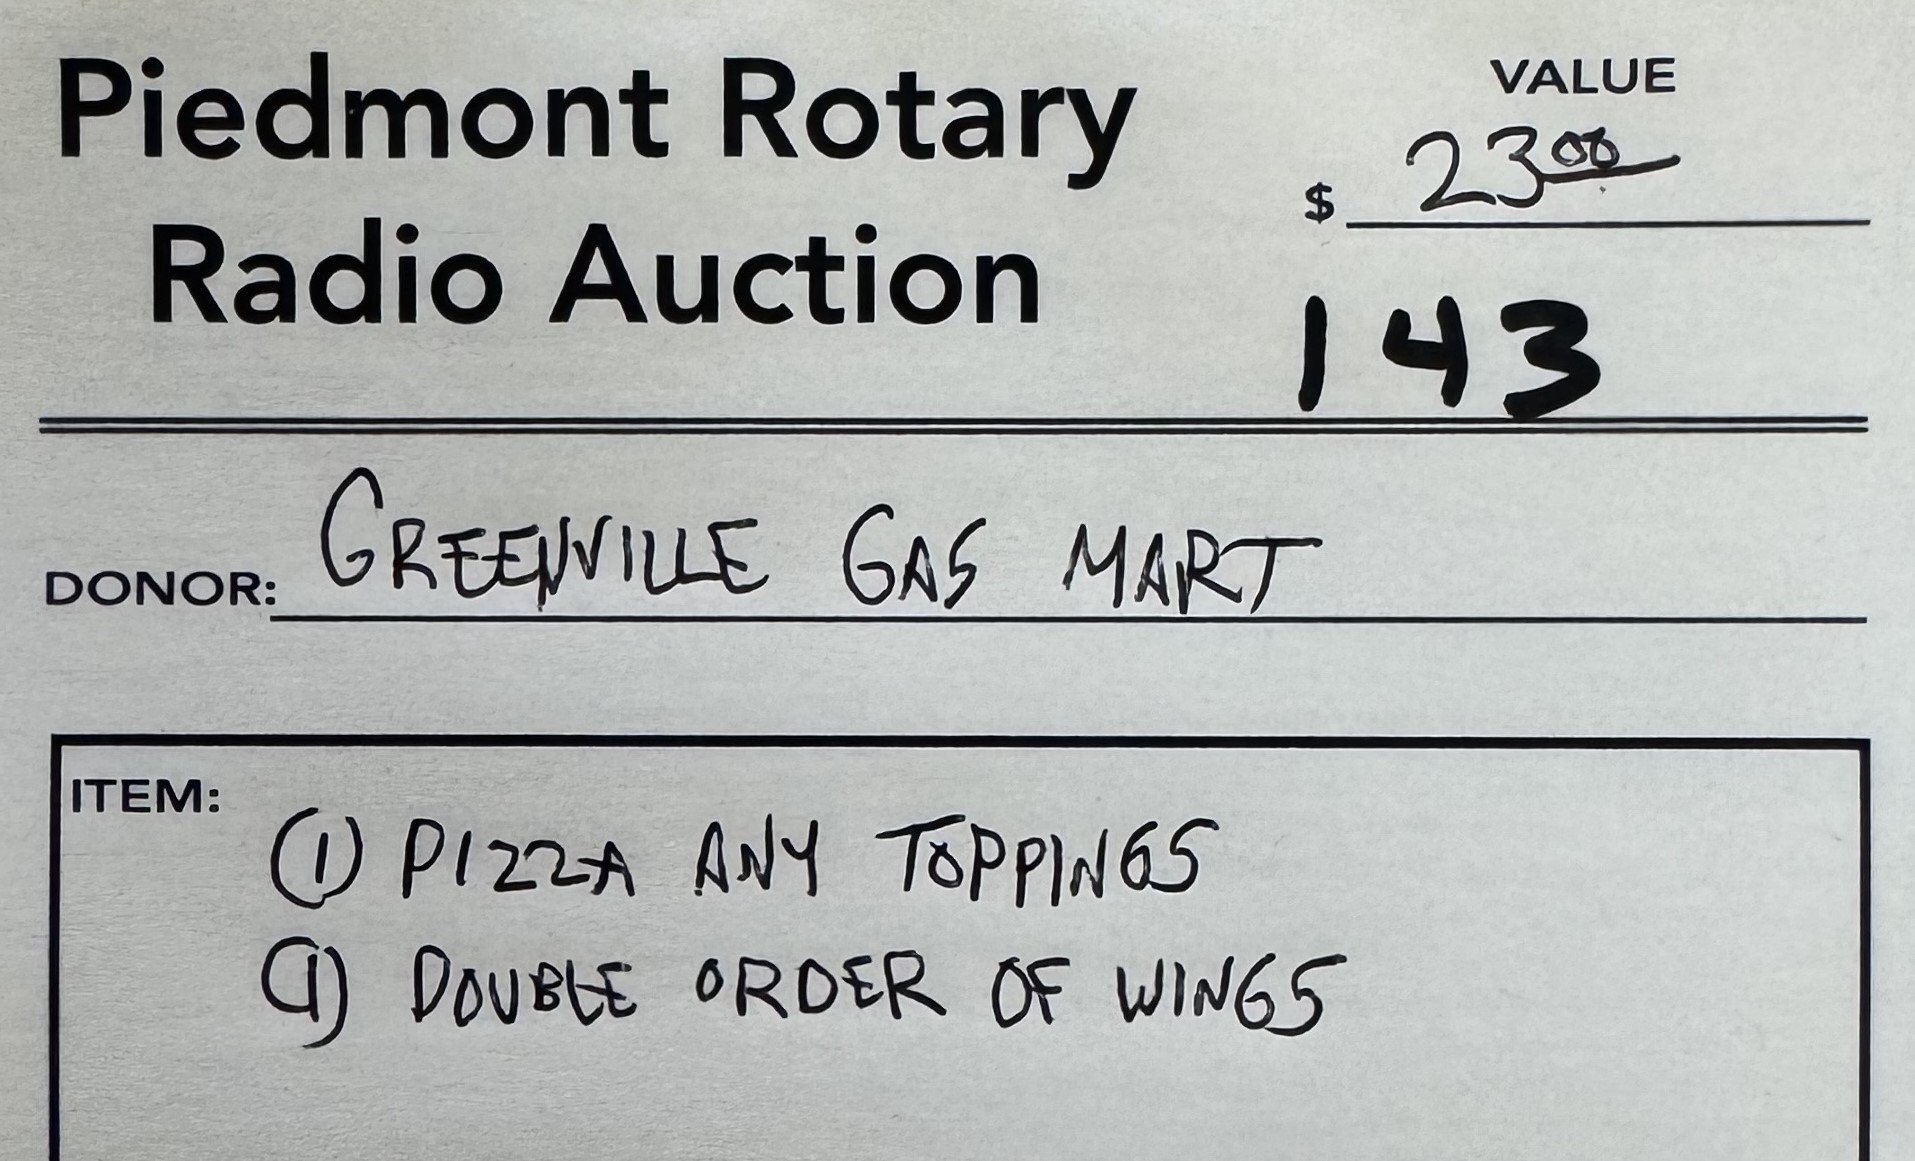 Piedmont Rotary
Radio Auction
VALUE
$ 23 00
143
DONOR: GREENVILLE GAS MART
ITEM:
(1) PIZZA ANY TOPPINGS
(1) DOUBLE ORDER OF WINGS